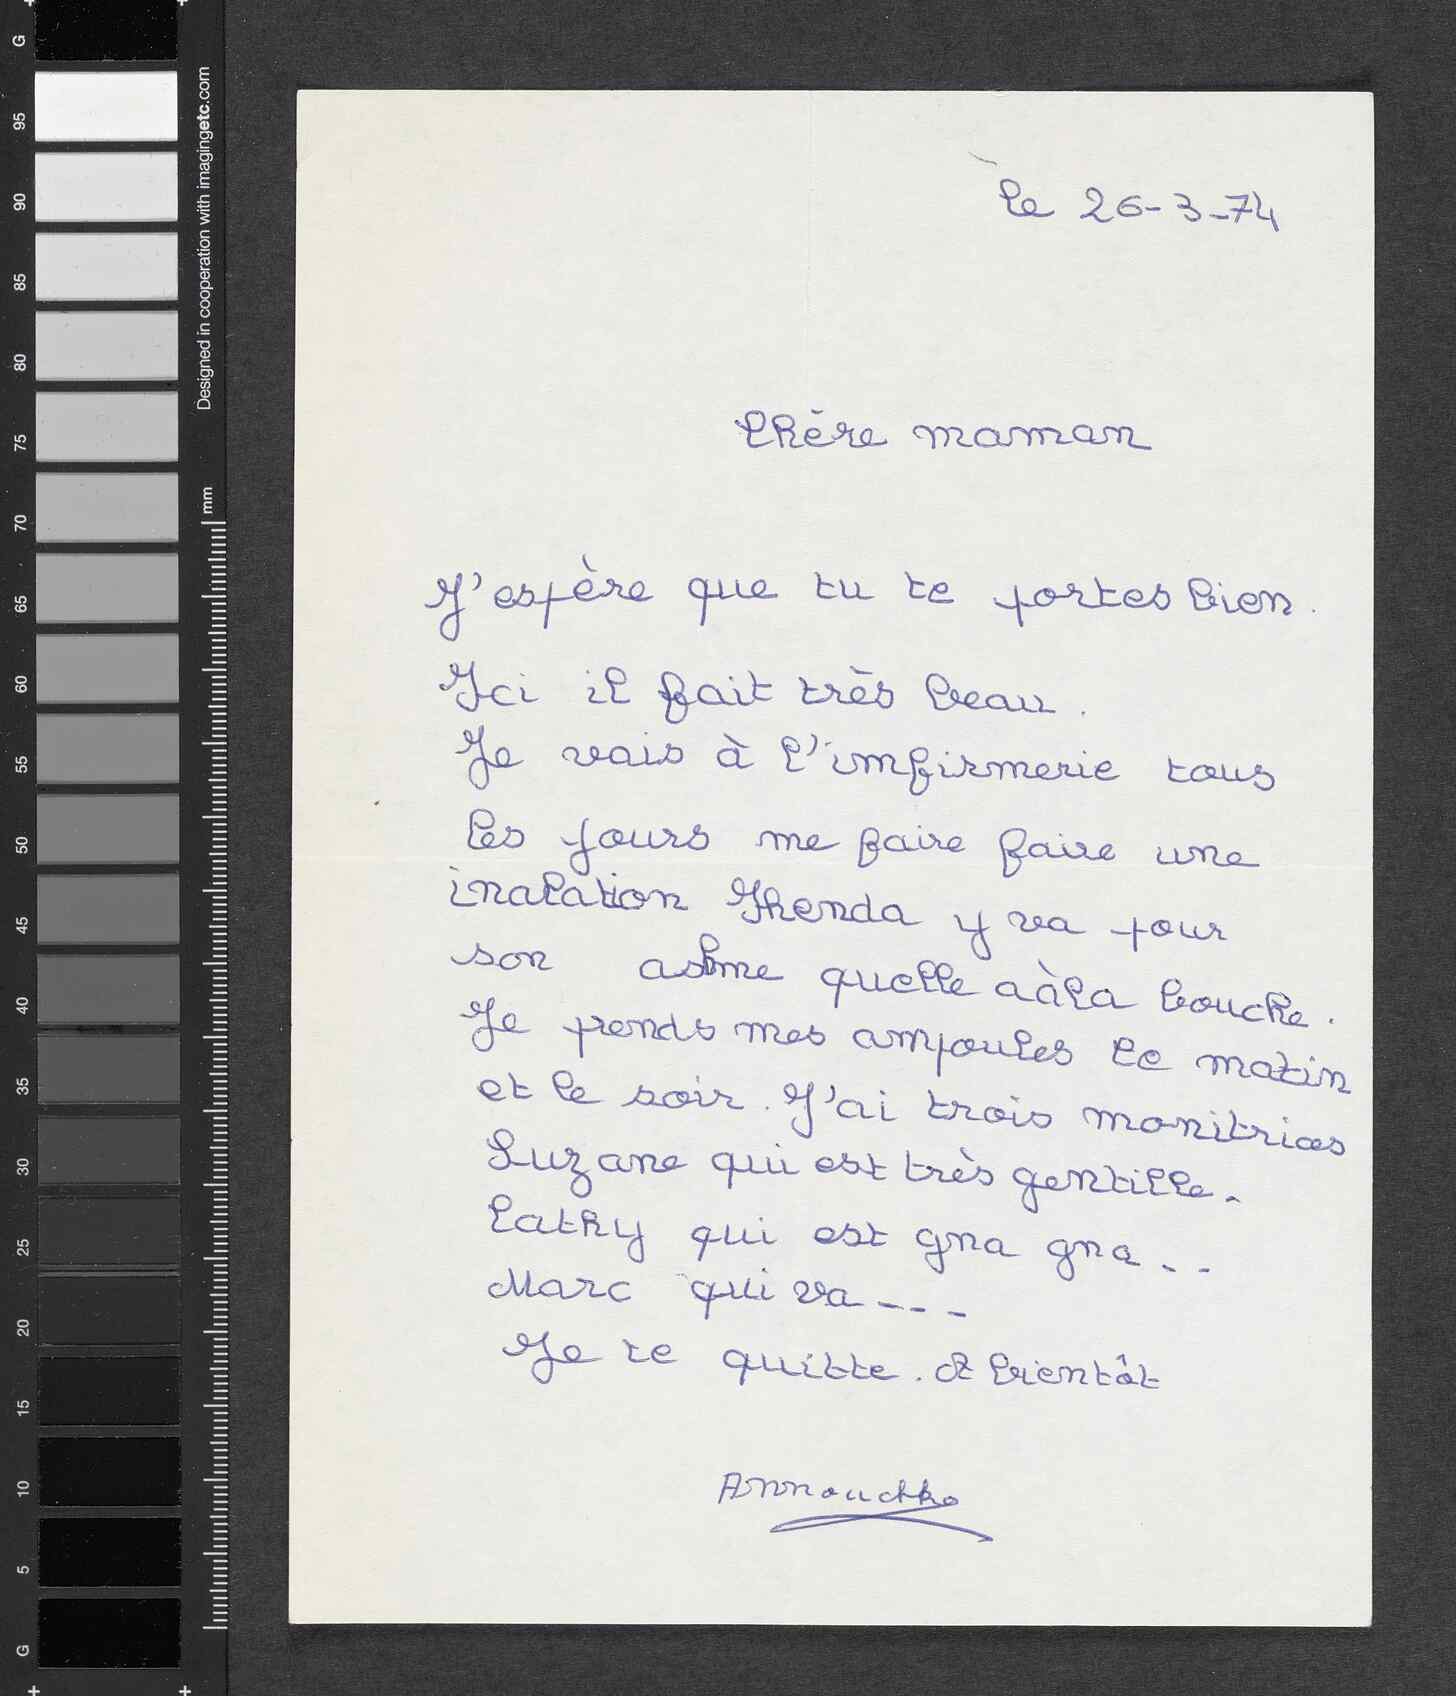 G
95
90
85
80
75
70
65
60
55
50
45
40
35
30
25
20
15
10
5
G
Designed in cooperation with imagingetc.com
mm
le 26-3-74
Chère maman
J'espère que tu te portes bien.
Ici il fait très beau.
Je vais à l'imfirmerie tous
les jours me faire faire une
inalation Ghenda y va pour
son asme quelle a à la bouche.
Je prends mes ampoules le matin
et le soir. J'ai trois monitrices
Suzane qui est très gentille.
Cathy qui est gna gna..
Marc qui va ---
Je te quitte. A bientôt
Annouchka